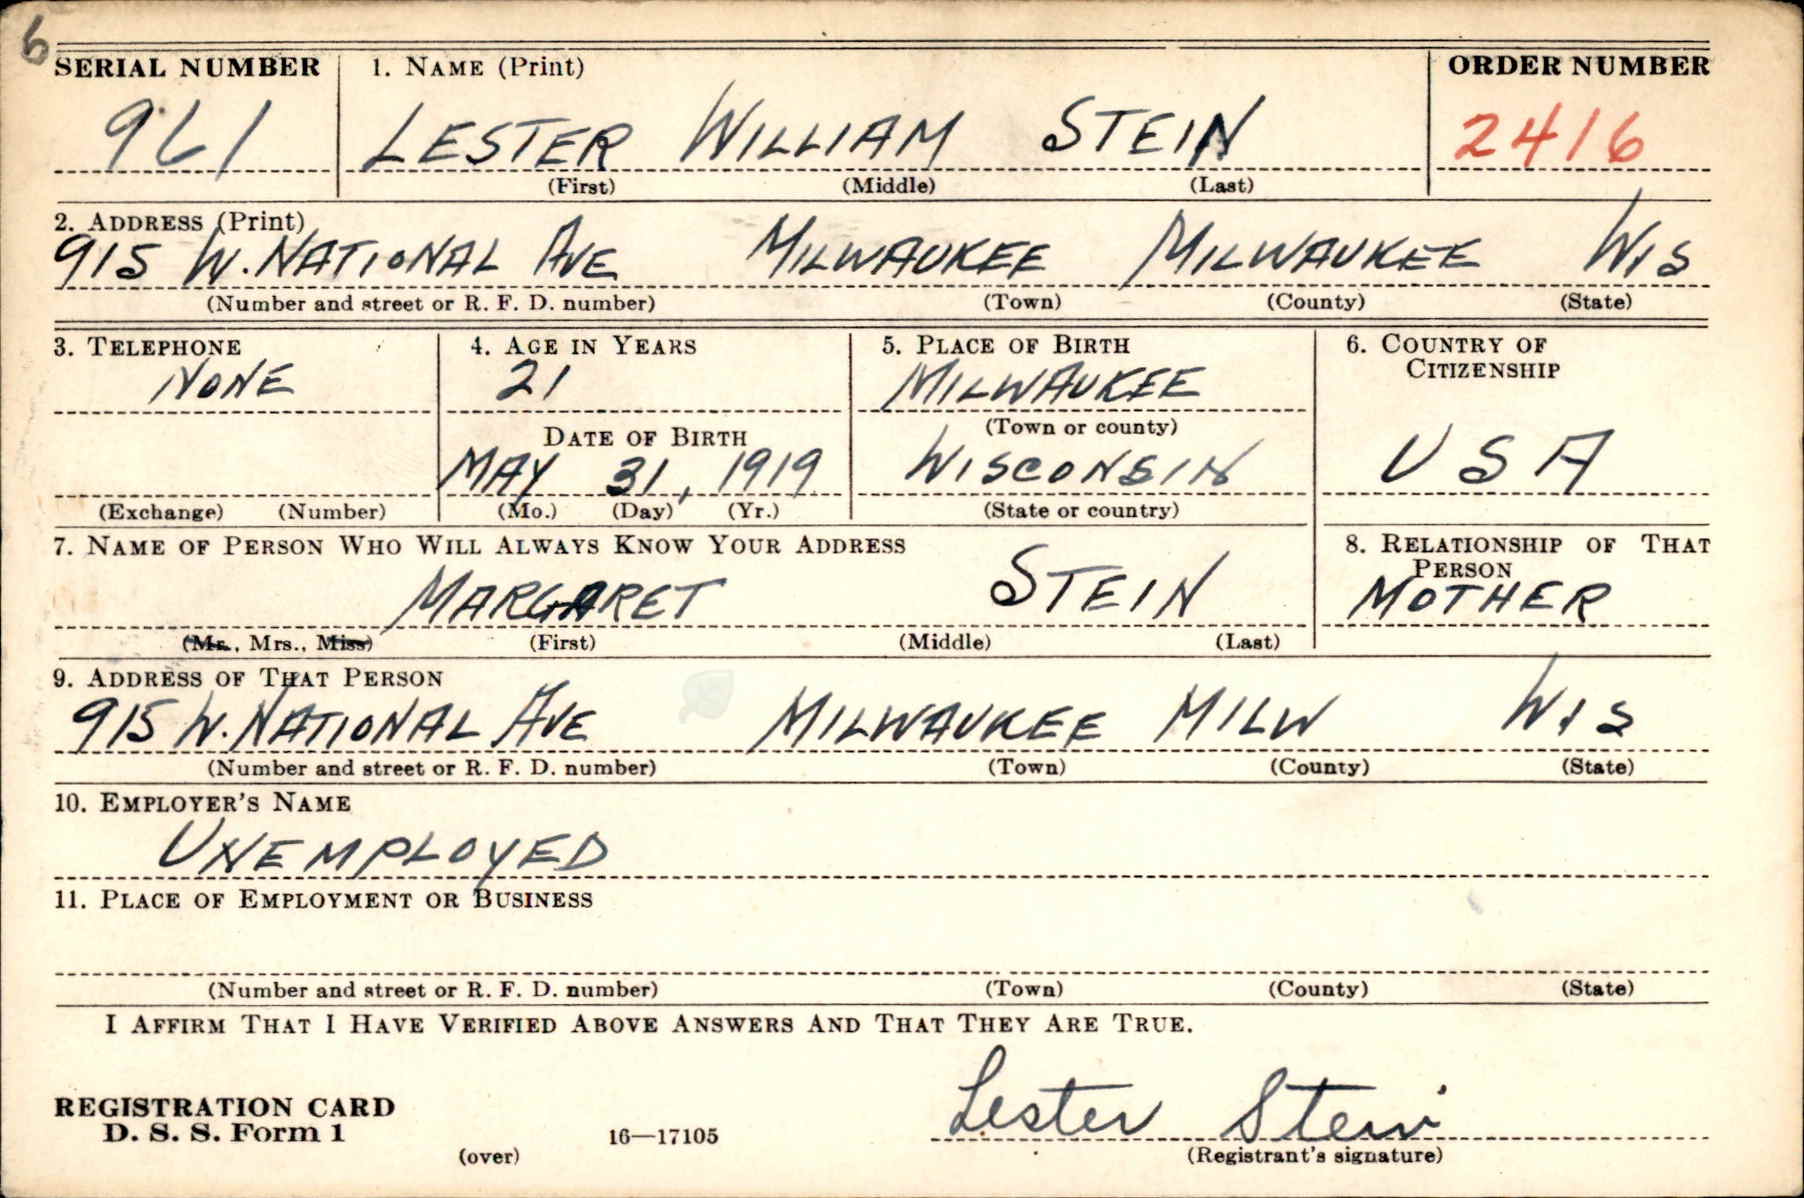 6
SERIAL NUMBER 1. NAME (Print) ORDER NUMBER
961 LESTER WILLIAM STEIN 2416
(First) (Middle) (Last)
2. ADDRESS (Print)
915 W. NATIONAL AVE MILWAUKEE MILWAUKEE WIS
(Number and street or R. F. D. number) (Town) (County) (State)
3. TELEPHONE 4. AGE IN YEARS 5. PLACE OF BIRTH 6. COUNTRY OF
CITIZENSHIP
NONE 21 MILWAUKEE
(Town or county)
DATE OF BIRTH
MAY 31, 1919 WISCONSIN USA
(Exchange) (Number) (Mo.) (Day) (Yr.) (State or country)
7. NAME OF PERSON WHO WILL ALWAYS KNOW YOUR ADDRESS 8. RELATIONSHIP OF THAT
PERSON
MARGARET STEIN MOTHER
(Mr., Mrs., Miss) (First) (Middle) (Last)
9. ADDRESS OF THAT PERSON
915 W. NATIONAL AVE MILWAUKEE MILW WIS
(Number and street or R. F. D. number) (Town) (County) (State)
10. EMPLOYER'S NAME
UNEMPLOYED
11. PLACE OF EMPLOYMENT OR BUSINESS
(Number and street or R. F. D. number) (Town) (County) (State)
I AFFIRM THAT I HAVE VERIFIED ABOVE ANSWERS AND THAT THEY ARE TRUE.
Lester Stein
REGISTRATION CARD
D. S. S. Form 1 16—17105
(over) (Registrant's signature)